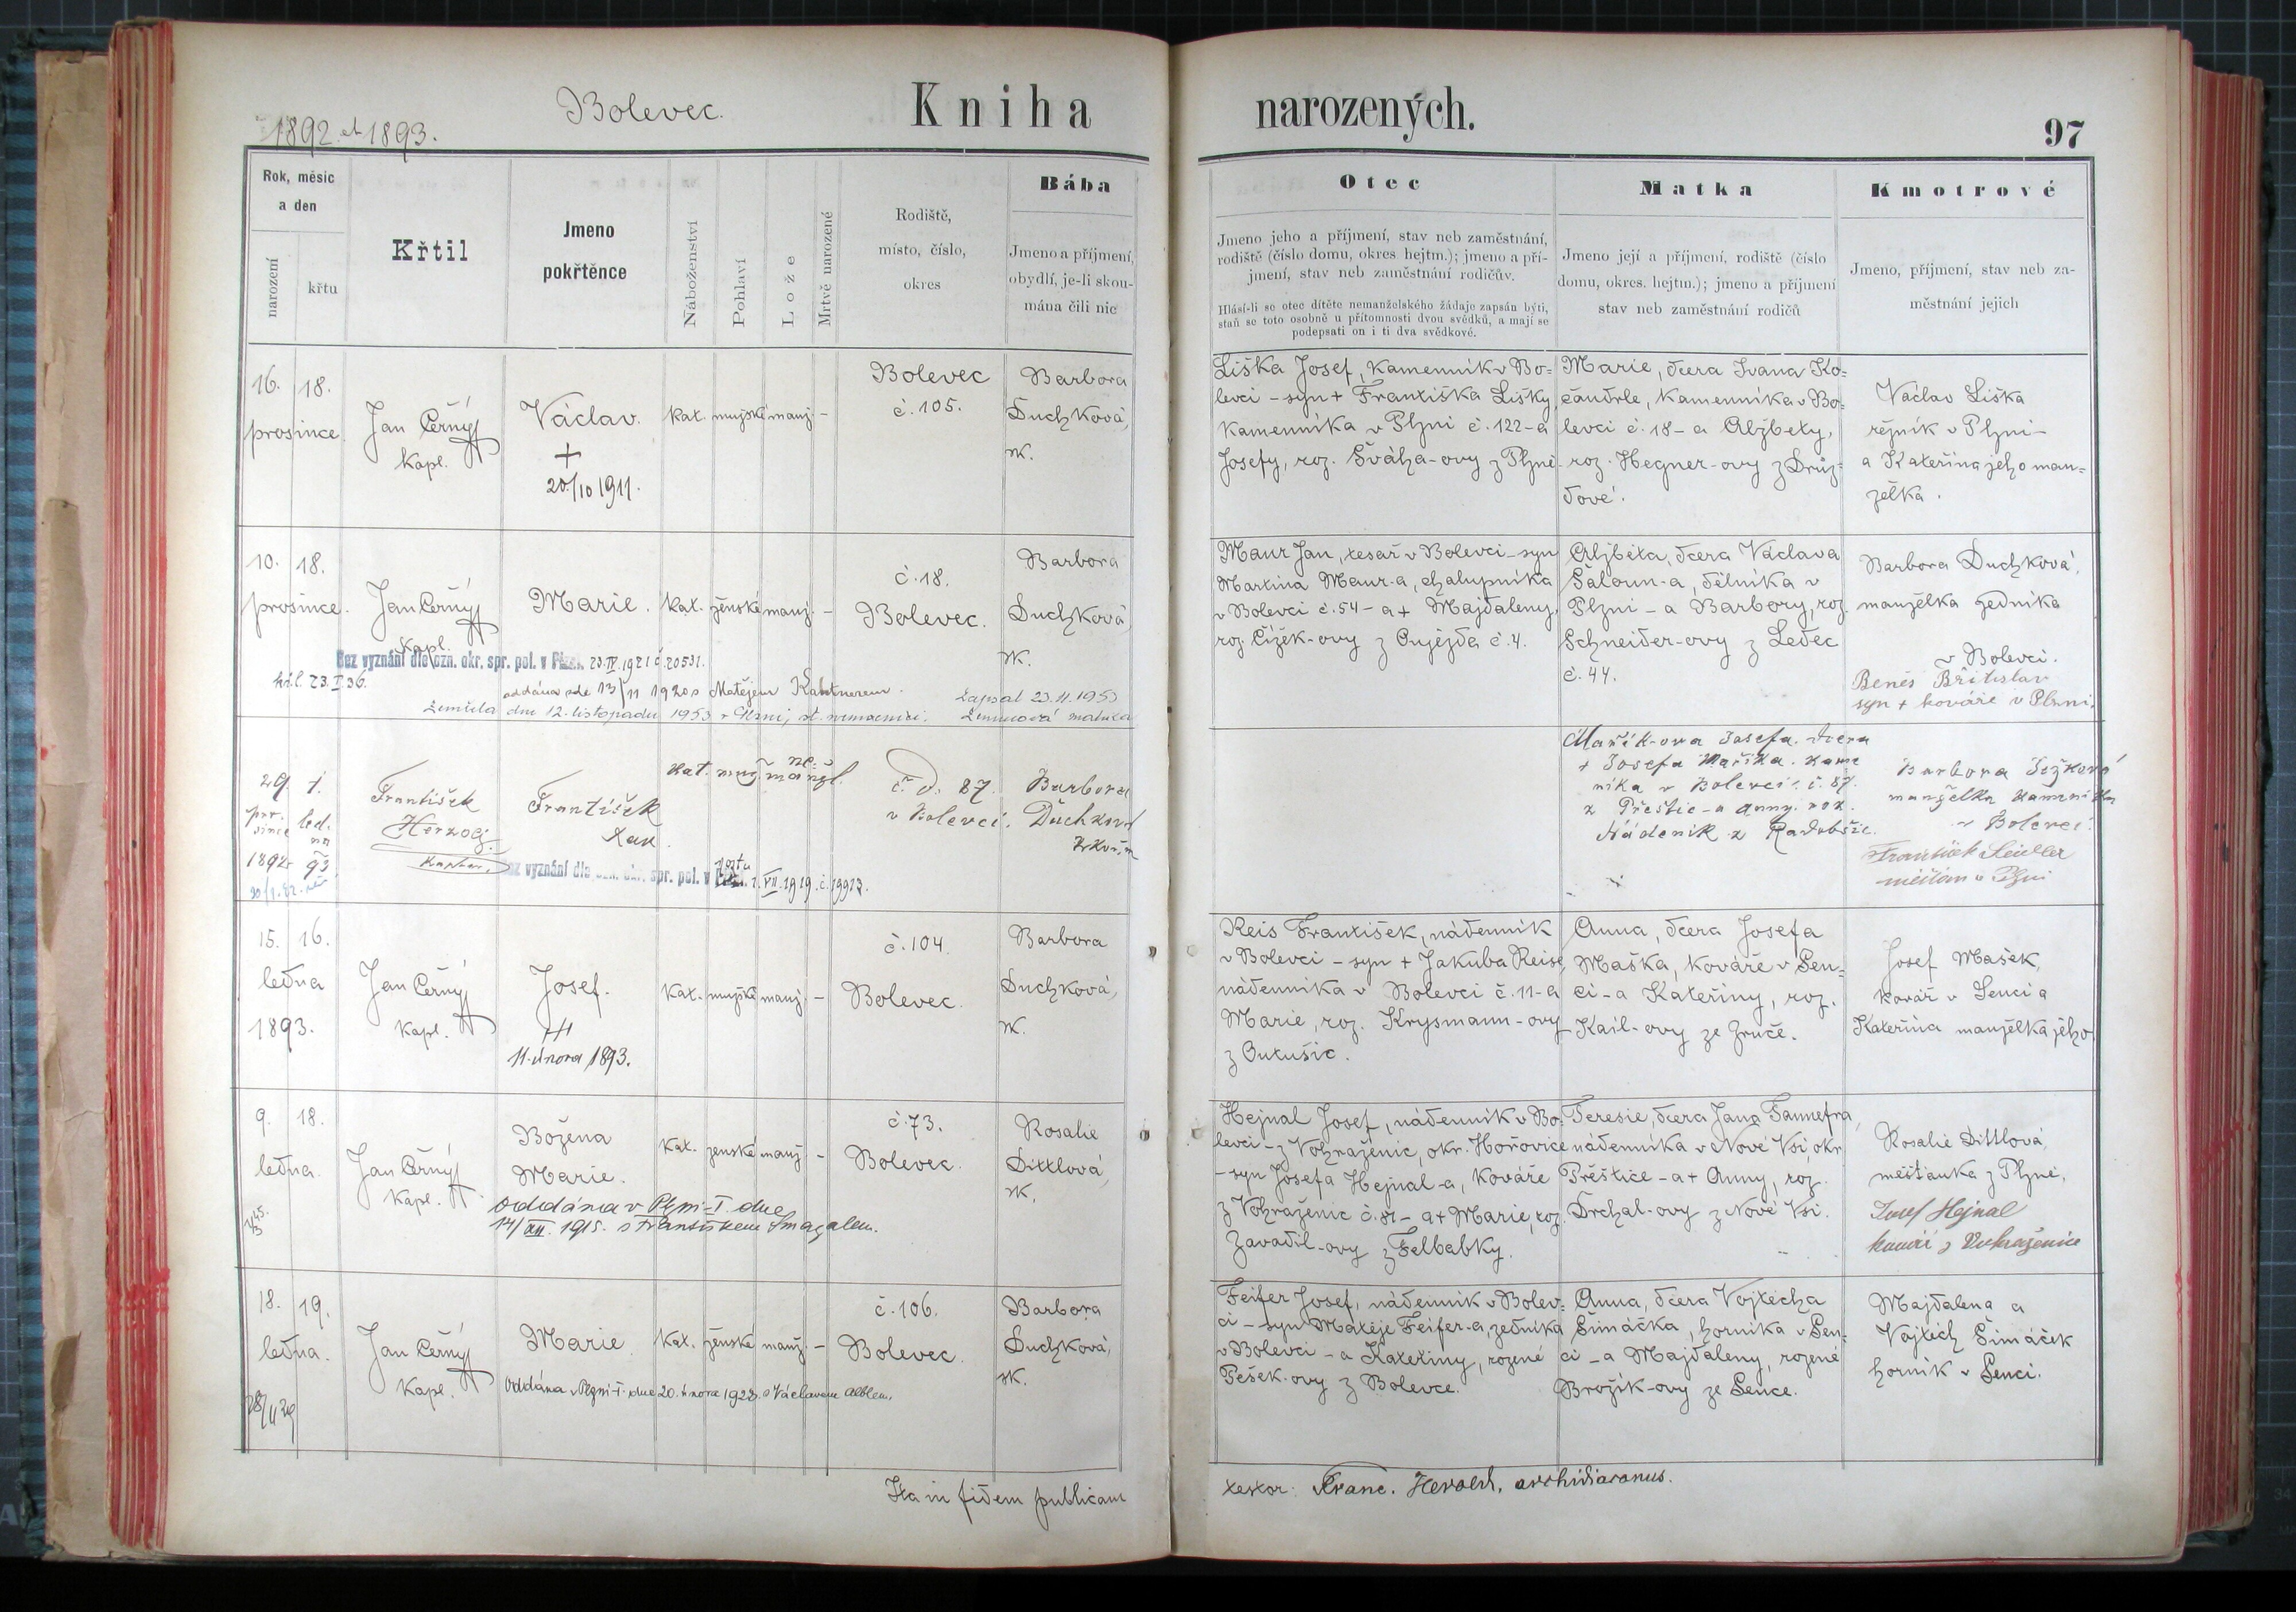 1892 et 1893.
Bolevec.
Kniha narozených.
97
Rok, měsíc
a den
narození
křtu
Křtil
Jmeno
pokřtěnce
Náboženství
Pohlaví
Lože
Mrtvě narozené
Rodiště,
místo, číslo,
okres
Bába
Jmeno a příjmení,
obydlí, je-li skou-
mána čili nic
Otec
Jmeno jeho a příjmení, stav neb zaměstnání,
rodiště (číslo domu, okres hejtm.); jmeno a pří-
jmení, stav neb zaměstnání rodičův.
Hlásí-li se otec dítěte nemanželského žádaje zapsán býti,
staň se toto osobně u přítomnosti dvou svědků, a mají se
podepsati on i ti dva svědkové.
Matka
Jmeno její a příjmení, rodiště (číslo
domu, okres. hejtm.); jmeno a příjmení
stav neb zaměstnání rodičů
Kmotrové
Jmeno, příjmení, stav neb za-
městnání jejich
16. 18.
prosince.
Jan Černý
kapl.
Václav.
+
20/10 1911.
kat. mužské manž. -
Bolevec
č. 105.
Barbora
Duchková,
zk.
Liška Josef, kamenník v Bo-
levci - syn + Františka Lišky,
kamenníka v Plzni č. 122 - a
Josefy, roz. Šváha-ovy z Plzně
Marie, dcera Ivana Ko-
čandrle, kamenníka v Bo-
levci č. 18 - a Alžbety,
roz. Hegner-ovy z Drůz-
dové.
Václav Liška
řezník v Plzni -
a Kateřina jeho man-
želka.
10. 18.
prosince.
Jan Černý
kapl.
Marie.
kat. ženské manž. -
č. 18.
Bolevec.
Barbora
Duchková,
zk.
Bez vyznání dle ozn. okr. spr. pol. v Plzni 23.IV.1921 č. 20531.
23.I.36.
oddána zde 13/11 1920 s Matějem Kastnerem.
Zemřela dne 12. listopadu 1953 v Plzni, st. nemocnici.
Zapsal 23.11.1953
Maur Jan, tesař v Bolevci - syn
Martina Maur-a, chalupníka
v Bolevci č. 54 - a + Majdaleny,
roz. Čížek-ovy z Oujezda č. 4.
Alžběta, dcera Václava
Šaloun-a, dělníka v
Plzni - a Barbory, roz.
Schneider-ovy z Ledec
č. 44.
Barbora Duchková,
manželka zedníka
v Bolevci.
Beneš Břetislav
syn + kováře v Plzni.
29. 1.
pro-
since
led-
na
1892 93
František
Herzog
kaplan
František
Xav.
kat. muž. ne-
manžel.
č. d. 87.
v Bolevci.
Barbora
Duchková
Bez vyznání dle ozn. okr. spr. pol. v 1.VII.1919. č. 19973.
Mařík-ova Josefa. dcera
+ Josefa Maříka. kame
níka v Bolevci. č. 87.
z Přeštic - a Anny. roz.
Nádeník z Radobšic.
Barbora
manželka kamenníka
v Bolevci.
František
měšťan v Plzni
15. 16.
ledna
1893.
Jan Černý
kapl.
Josef.
11. února 1893.
kat. mužské manž. -
č. 104.
Bolevec.
Barbora
Duchková,
zk.
Reis František, nádenník
v Bolevci - syn + Jakuba Reise,
nádenníka v Bolevci č. 11 - a
Marie, roz. Krysmann-ovy
z Outušic.
Anna, dcera Josefa
Maška, kováře v Sen-
ci - a Kateřiny, roz.
Kail-ovy ze Zruče.
Josef Mašek,
kovář v Senci a
Kateřina manželka jeho
9. 18.
ledna.
Jan Černý
kapl.
Božena
Marie.
kat. ženské manž. -
č. 73.
Bolevec.
Rosalie
Dittlová,
zk.
Oddána v Plzni-I. dne
14/XII. 1915. s Františkem Smazalem.
Hejnal Josef, nádenník v Bo-
levci - z Vohraženic, okr. Hořovice
- syn Josefa Hejnal-a, kováře
z Vohraženic č. 81 - a + Marie, roz.
Zavadil-ovy z Felbabky.
Teresie, dcera Jana Tannefra,
nádenníka v Nové Vsi, okr.
Přeštice - a + Anny, roz.
Drchal-ovy z Nové Vsi.
Rosalie Dittlová,
měšťanka z Plzně.
Josef Hejnal
kovář z Vohraženice
18. 19.
ledna.
Jan Černý
kapl.
Marie.
kat. ženské manž. -
č. 106.
Bolevec.
Barbora
Duchková,
zk.
Oddána v Plzni-I. dne 20. února 1922. s Václavem Alblem.
Feifer Josef, nádenník v Bolev-
ci - syn Matěje Feifer-a, zedníka
v Bolevci - a Kateřiny, rozené
Pešek-ovy z Bolevce.
Anna, dcera Vojtěcha
Šimáčka, horníka v Sen-
ci - a Majdaleny, rozené
Brožík-ovy ze Sence.
Majdalena a
Vojtěch Šimáček
horník v Senci.
Ita in fidem publicam
testor: Franc. Herold, archidiaconus.